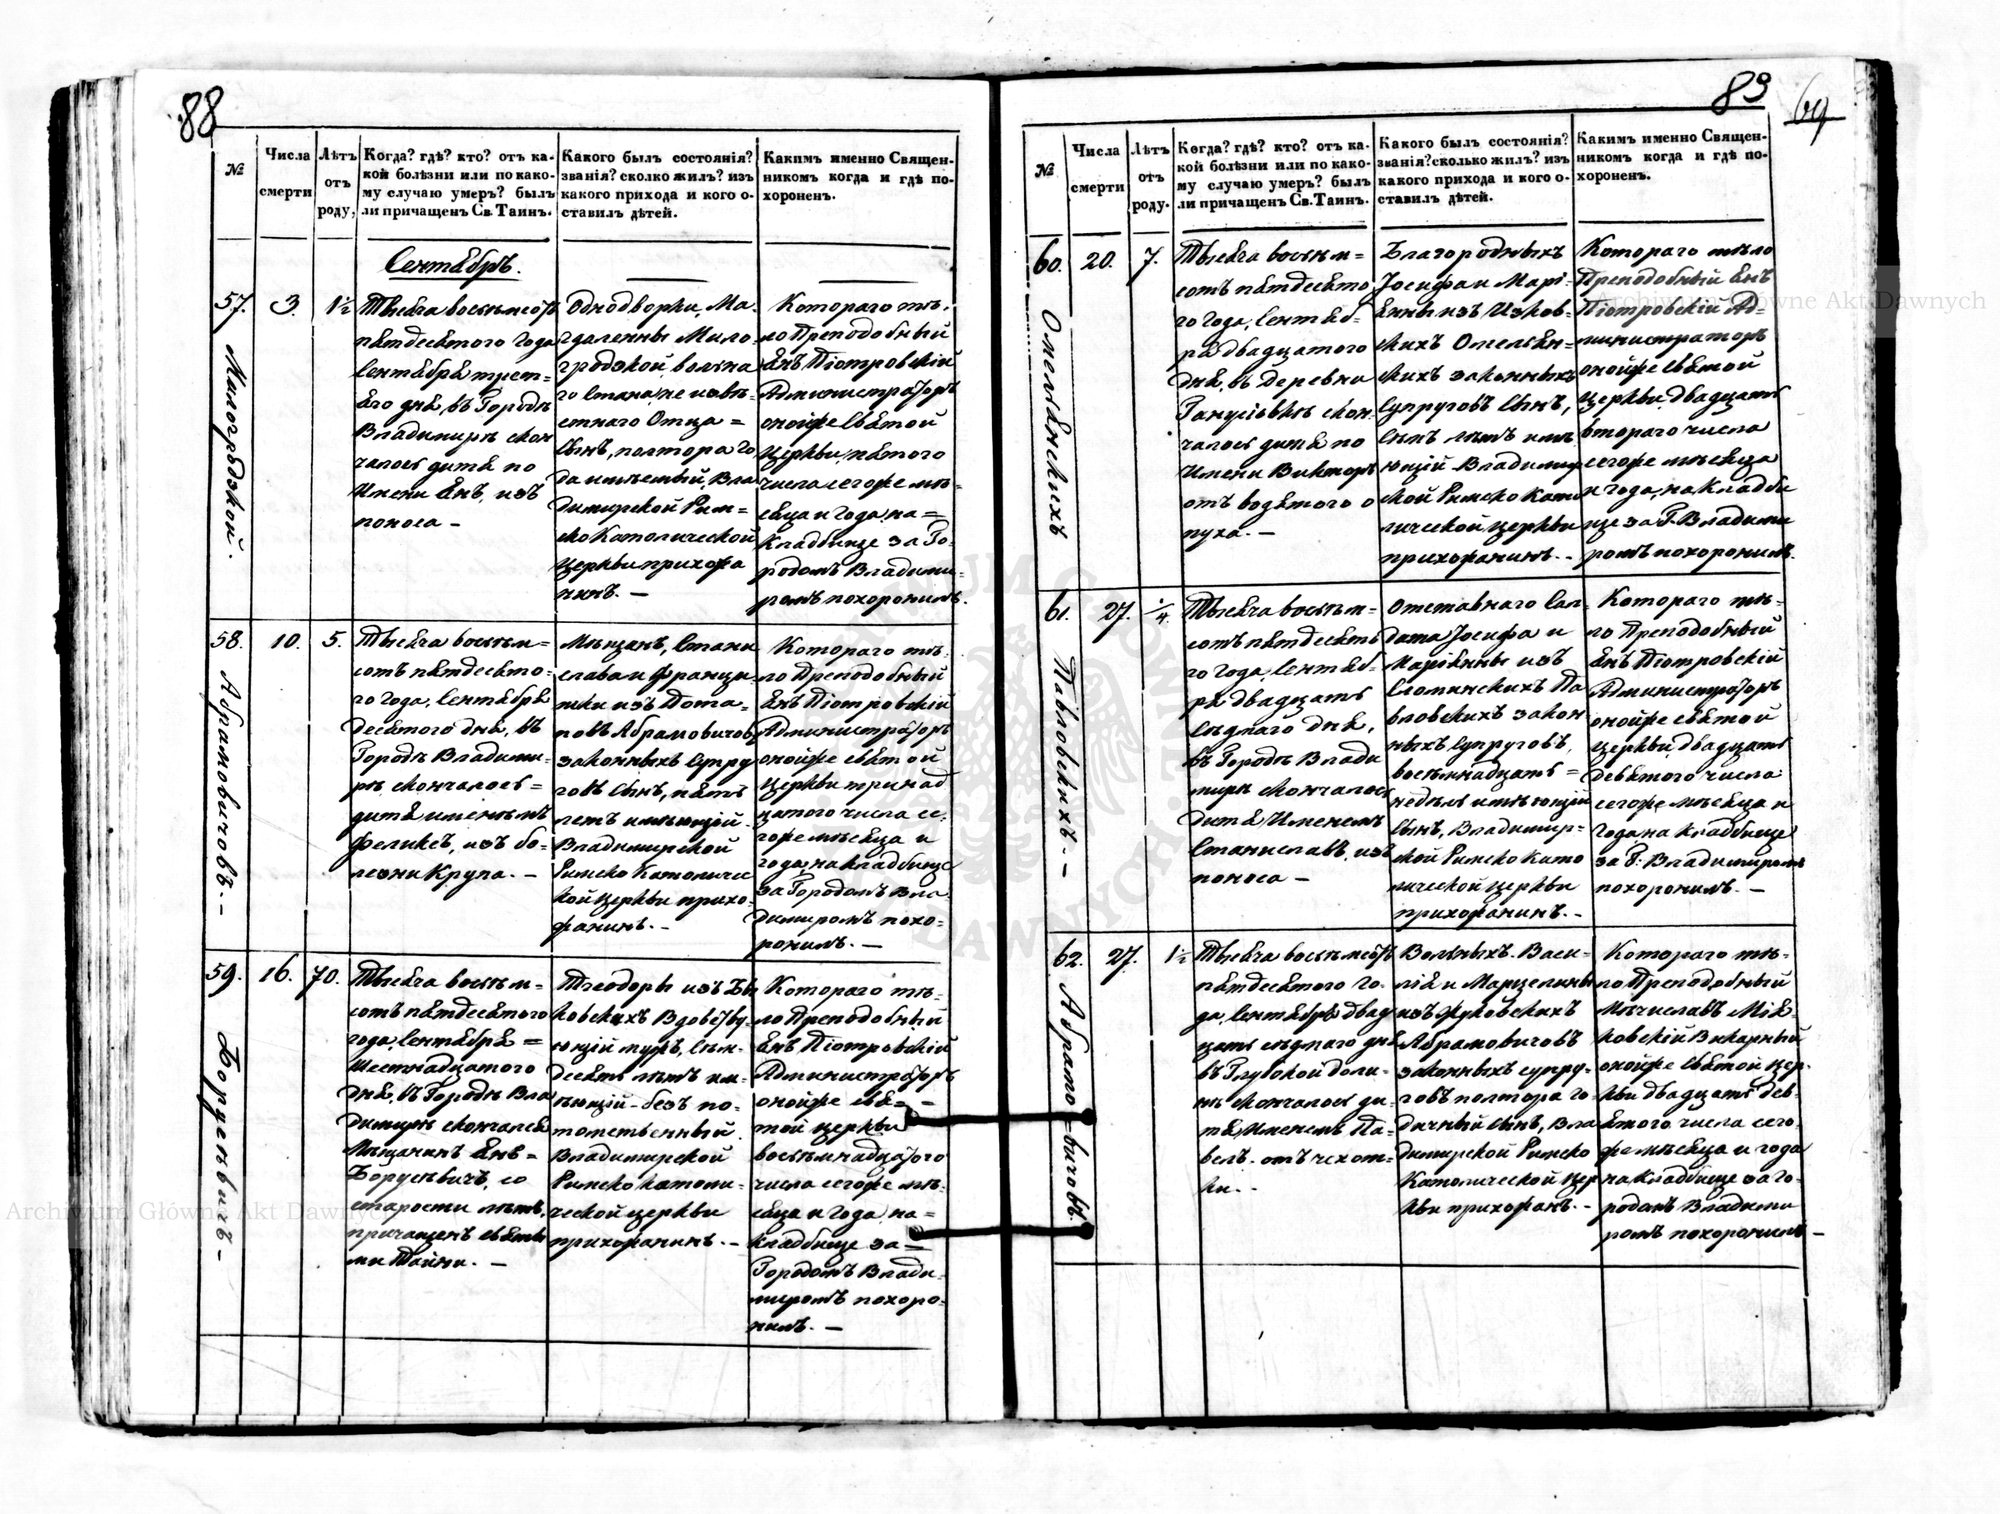 88
№
Числа
смерти
Лѣтъ
отъ
роду,
Когда? гдѣ? кто? отъ ка-
кой болѣзни или по како-
му случаю умеръ? былъ
ли причащенъ Св. Таинъ.
Какого былъ состоянія?
званія? сколко жилъ? изъ
какого прихода и кого о-
ставилъ дѣтей.
Какимъ именно Священ-
никомъ когда и гдѣ по-
хороненъ.
Сентябрь.
57.
Милогродзкой.
3.
1½
Тысяча восемьсотъ
пятдесятого года
Сентября треть-
его дня, въ Городѣ
Владимирѣ скон
чалось дитя по
Имени Янъ, изъ
поноса –
Однодворки, Ма-
гдалены Мило
гродзкой, вольна
го Стана, не извѣ-
стнаго Отца =
Сынъ, полтора го
да имѣетый, Вла
димирской Рим=
ско Католической
Церкви прихожа
нинъ. –
Котораго тѣ-
ло Преподобный
Янъ Піотровскій
Администраторъ
онойже Святой
Церкви, пятого
числа сегоже мѣ-
сяца и года, на=
Кладбище за Го-
родомъ Владими-
ромъ похоронилъ.
58.
Абрамовичовъ. –
10.
5.
Тысяча восемь=
сотъ пятдесято-
го года, Сентября
десятого дня, въ
Городѣ Владими-
рѣ скончалось =
дитя именемъ
Феликсъ, изъ бо-
лезни Крупа. –
Мѣщанъ, Стани
слава и Франци-
шки изъ Пота-
повъ Абрамовичов
законныхъ Супру
говъ Сынъ, пять
летъ имѣющій.
Владимирской
Римско Католиче
кой Церкви прихо-
жанинъ. –
Котораго тѣ-
ло Преподобный
Янъ Піотровскій
Администраторъ
онойже святой
Церкви тринад
цатого числа се-
гоже мѣсяца и
года, на кладбище
за Городомъ Вла
димиромъ похо-
ронилъ. –
59.
Боруцевичъ –
16.
70.
Тысяча восемь=
сотъ пятдесятого
года, Сентября =
Шестнадцатого
дня, въ Городѣ Вла
димирѣ скончался
Мѣщанинъ Янъ =
Боруцевичъ, со
старости лѣтъ,
причащенъ святы
ми Тайни. –
Теодоры изъ Бы
ковскихъ Вдовству-
ющій мужъ, Сем-
десять лѣтъ им-
ѣющій – безъ по-
томственный.
Владимирской
Римско католи-
ческой церкви
прихожанинъ. –
Котораго тѣ-
ло Преподобный
Янъ Піотровскій
Администраторъ
онойже свя= –
той церкви
восемьнадцатого
числа сегоже мѣ-
сяца и года, на=
кладбище за=
Городомъ Влади-
миромъ похоро-
нилъ. –
89
69
№
Числа
смерти
Лѣтъ
отъ
роду.
Когда? гдѣ? кто? отъ ка-
кой болѣзни или по како-
му случаю умеръ? былъ
ли причащенъ Св. Таинъ.
Какого былъ состоянія?
званія? сколько жилъ? изъ
какого прихода и кого о-
ставилъ дѣтей.
Какимъ именно Священ-
никомъ когда и гдѣ по-
хороненъ.
60.
Омелянскихъ
20.
7.
Тысяча восемь=
сотъ пятдесято
го года, Сентяб-
ря двадцатого
дня, въ деревни
скон
чалось дитя по
Имени Викторъ
отъ водятого о
пуха. –
Благородныхъ
Іосифа и Марі-
янны изъ
Омелян=
скихъ законныхъ
Супруговъ Сынъ,
семъ лѣтъ имѣ
ющій Владимир
ской Римско Като
лической церкви
прихожанинъ. –
Котораго тѣло
Преподобный Янъ
Піотровскій Ад-
министраторъ
онойже святой
Церкви, двадцать
второго числа
сегоже мѣсяца
и года, на Кладби
ще за Г. Владими
ромъ похоронилъ.
61.
Павловскихъ. –
27.
¼
Тысяча восемь=
сотъ пятдесять
го года, Сентяб-
ря двадцать
седмаго дня,
въ Городѣ Влади
мирѣ скончалось
дитя Именемъ
Станиславъ, изъ
поноса –
Отставнаго Сол-
дата Іосифа и
Маріянны изъ
Сломинскихъ Па
вловскихъ закон
ныхъ Супруговъ,
восемьнадцать =
недѣль имѣющій
Сынъ, Владимир=
ской Римско Като
лической церкви
прихожанинъ. –
Котораго тѣ-
ло Преподобный
Янъ Піотровскій
Администраторъ
онойже святой
Церкви, двадцать
девятого числа
сегоже мѣсяца и
года, на кладбище
за Г: Владимиромъ
похоронилъ. –
62.
Абрамо=вичовъ.
27.
1½
Тысяча восемьсотъ
пятдесятого го-
да, Сентября двад
цать седмаго дня
въ Глубокой доли-
нѣ скончалось ди-
тя Именемъ Па-
велъ. отъ чехот-
ки. –
Вольныхъ. Васи-
лія и Марцелины
изъ Жуковскихъ
Абрамовичовъ
законныхъ супру-
говъ полтора го-
дичный сынъ, Вла
димирской Римско
Католической Цер
кви прихожан. –
Котораго тѣ-
ло Преподобный
Мѣчиславъ
Викарный
онойже святой цер-
кви двадцать дев-
ятого числа сего-
же мѣсяца и года
на кладбище за го-
родомъ Владими
ромъ похоронилъ –
Archiwum Główne Akt Dawnych
Archiwum Główne Akt Dawnych